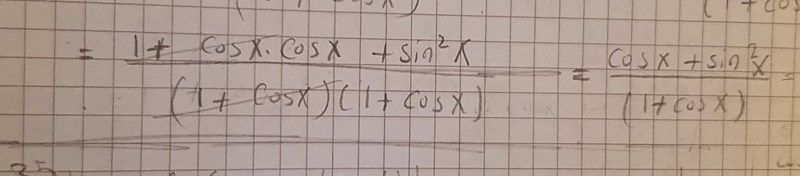 = 1 + cosx · cosx + sin²x / (1 + cosx)(1 + cosx) = cosx + sin²x / (1 + cosx) =